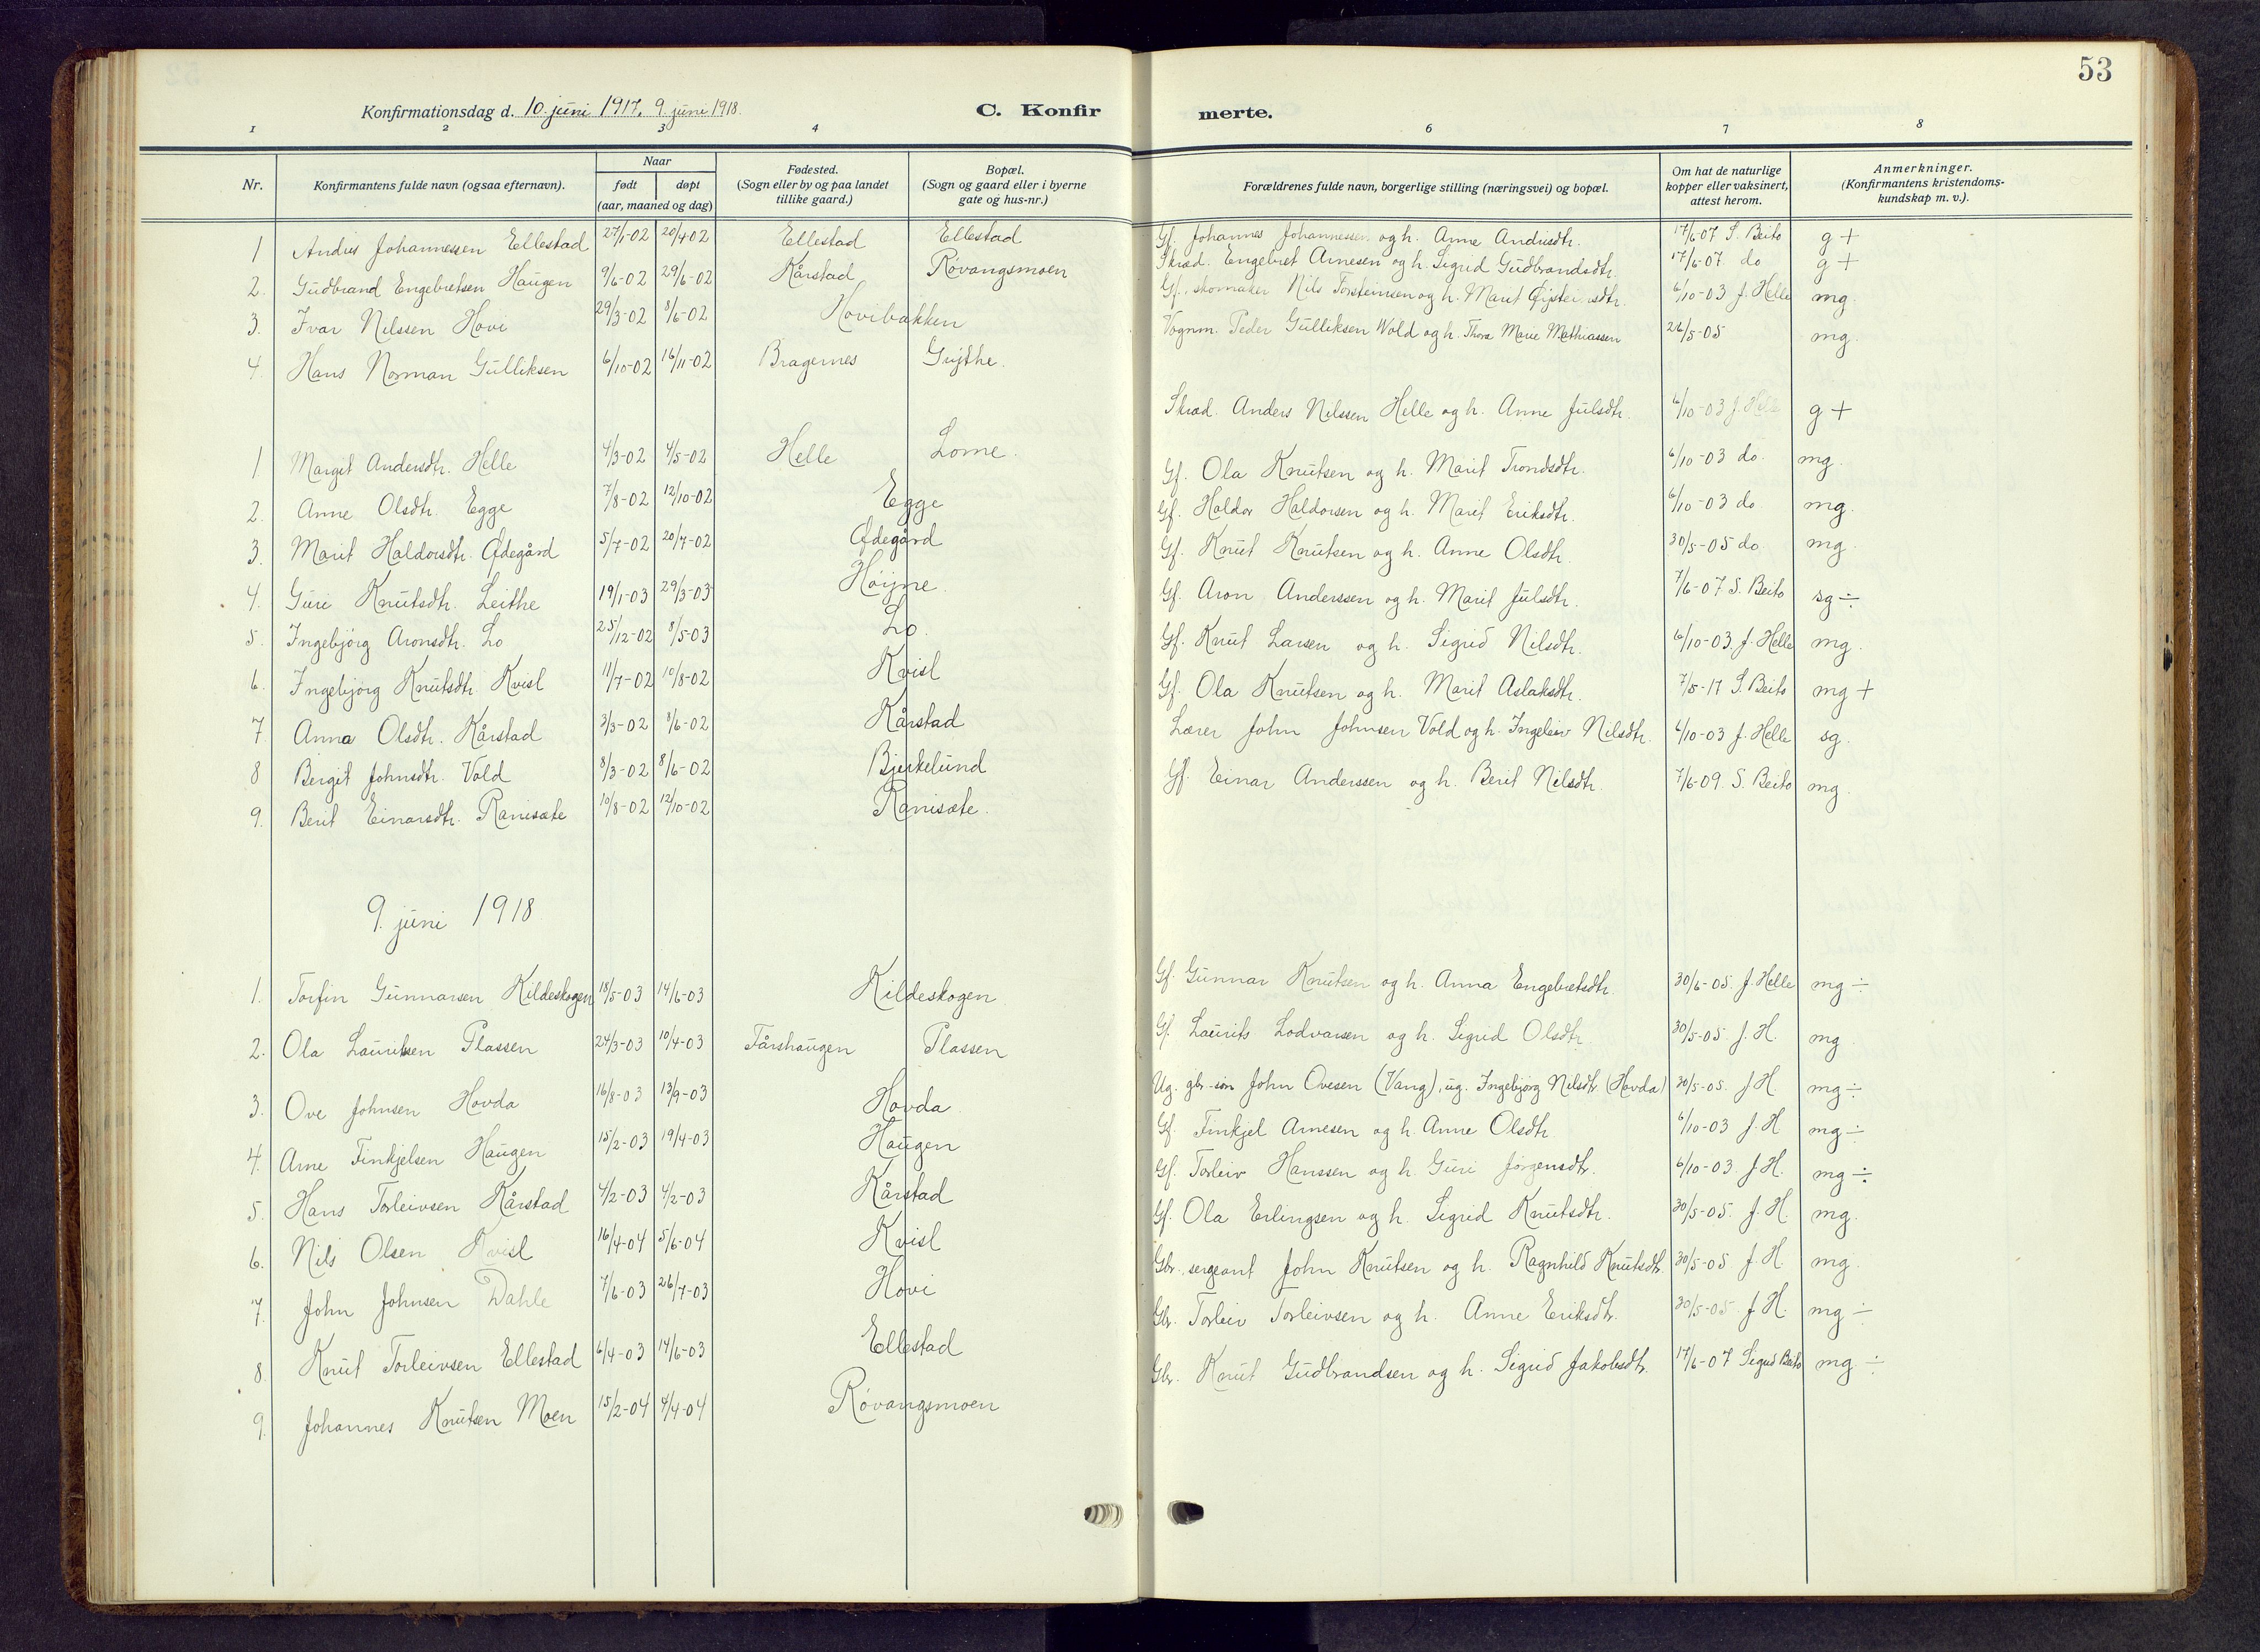 53
Konfirmationsdag d. 10. juni 1917. 9. juni 1918. C. Konfir merte.
1 2 3 4 6 7 8
Nr. Konfirmantens fulde navn (ogsaa efternavn). Naar født døpt (aar, maaned og dag) Fødested. (Sogn eller by og paa landet tillike gaard.) Bopæl. (Sogn og gaard eller i byerne gate og hus-nr.) Forældrenes fulde navn, borgerlige stilling (næringsvei) og bopæl. Om hat de naturlige kopper eller vaksinert, attest herom. Anmerkninger. (Konfirmantens kristendoms-kundskap m. v.).
1 Andris Johannessen Ellestad 27/1-02 20/4-02 Ellestad Ellestad Gf. Johannes Johannessen og h. Anne Andrisdtr. 17/6-07 S. Beito g +
2. Gudbrand Engebretsen Haugen 9/6-02 29/6-02 Kårstad Røvangsmoen Skræd. Engebret Arnesen og h. Sigrid Gudbrandsdtr. 17/6-07 do g +
3. Ivar Nilssen Hovi 29/3-02 8/6-02 Hovibakken Gf., skomaker Nils Torsteinsen og h. Marit Øisteinsdtr. 6/10-03 J. Helle mg.
4. Hans Norman Gulliksen 6/10-02 16/11-02 Bragernes Grythe. Vognm. Peder Gulliksen Wold og h. Thora Marie Mathiassen 26/5-05 mg.
1 Margit Andersdtr. Helle 4/3-02 4/5-02 Helle Lome. Skræd. Anders Nilssen Helle og h. Anne Julsdtr. 6/10-03 J. Helle g +
2. Anne Olsdtr. Egge 7/8-02 12/10-02 Egge Gf. Ola Knutsen og h. Marit Trondsdtr. 6/10-03 do. mg.
3. Marit Haldorsdtr. Ødegård 5/7-02 20/7-02 Ødegård Gf. Haldor Haldorsen og h. Marit Eriksdtr. 6/10-03 do mg.
4. Guri Knutsdtr. Leithe 19/1-03 29/3-03 Høijne. Gf. Knut Knutsen og h. Anne Olsdtr. 30/5-05 do mg.
5. Ingebjörg Aronsdtr. Lo 25/12-02 8/5-03 Lo. Gf. Aron Anderssen og h. Marit Julsdtr. 7/6-07 S. Beito sg ÷
6. Ingebjörg Knutsdtr. Kvisl 11/7-02 10/8-02 Kvisl Gf. Knut Larsen og h. Sigrid Nilsdtr. 6/10-03. J. Helle mg.
7. Anna Olsdtr. Kårstad 3/3-02 8/6-02 Kårstad Gf. Ola Knutsen og h. Marit Aslaksdtr. 7/5-17 S. Beito mg +
8 Bergit Johnsdtr. Vold 8/3-02 8/6-02 Bjerkelund Lærer John Johnsen Vold og h. Ingeleiv Nilsdtr. 6/10-03 J. Helle sg.
9. Berit Einarsdtr. Ranisæte 10/8-02 12/10-02 Ranisæte. Gf. Einar Anderssen og h. Berit Nilsdtr. 7/6-09. S. Beito mg.
9. juni 1918
1. Torfin Gunnarsen Kildeskogen 18/5-03 14/6-03 Kildeskogen Gf. Gunnar Knutsen og h. Anna Engebretsdtr. 30/6-05. J. Helle mg ÷
2. Ola Lauritsen Plassen 24/3-03 10/4-03 Fårshaugen Plassen Gf. Laurits Lodvarsen og h. Sigrid Olsdtr. 30/5-05 J. H. mg
3. Ove Johnsen Hovda 16/8-03 13/9-03 Hovda Ug. gbr.-søn John Ovesen (Vang), ug. Ingebjørg Nilsdtr. (Hovda) 30/5-05. J H. mg ÷
4. Arne Finkjelsen Haugen 15/2-03 19/4-03 Haugen Gf. Finkjel Arnesen og h. Anne Olsdtr. 6/10-03 J. H. mg ÷
5. Hans Torleivsen Kårstad 4/2-03 4/2-03 Kårstad Gf. Torleiv Hanssen og h. Guri Jörgensdtr. 6/10-03. J. H. mg ÷
6. Nils Olsen Kvisl 16/4-04 5/6-04 Kvisl Gf. Ola Erlingsen og h. Sigrid Knutsdtr. 30/5-05. J. H. mg.
7. John Johnsen Dahle 7/6-03 26/7-03 Hovi Gbr., sergeant John Knutsen og h. Ragnhild Knutsdtr. 30/5-05 J. H. mg.
8. Knut Torleivsen Ellestad 6/4-03 14/6-03 Ellestad Gbr. Torleiv Torleivsen og h. Anne Eriksdtr. 30/5-05. J H. mg ÷
9. Johannes Knutsen Moen 15/2-04 4/4-04 Røvangsmoen Gbr. Knut Gudbrandsen og h. Sigrid Jakobsdtr. 17/6-07 Sigrid Beito mg ÷